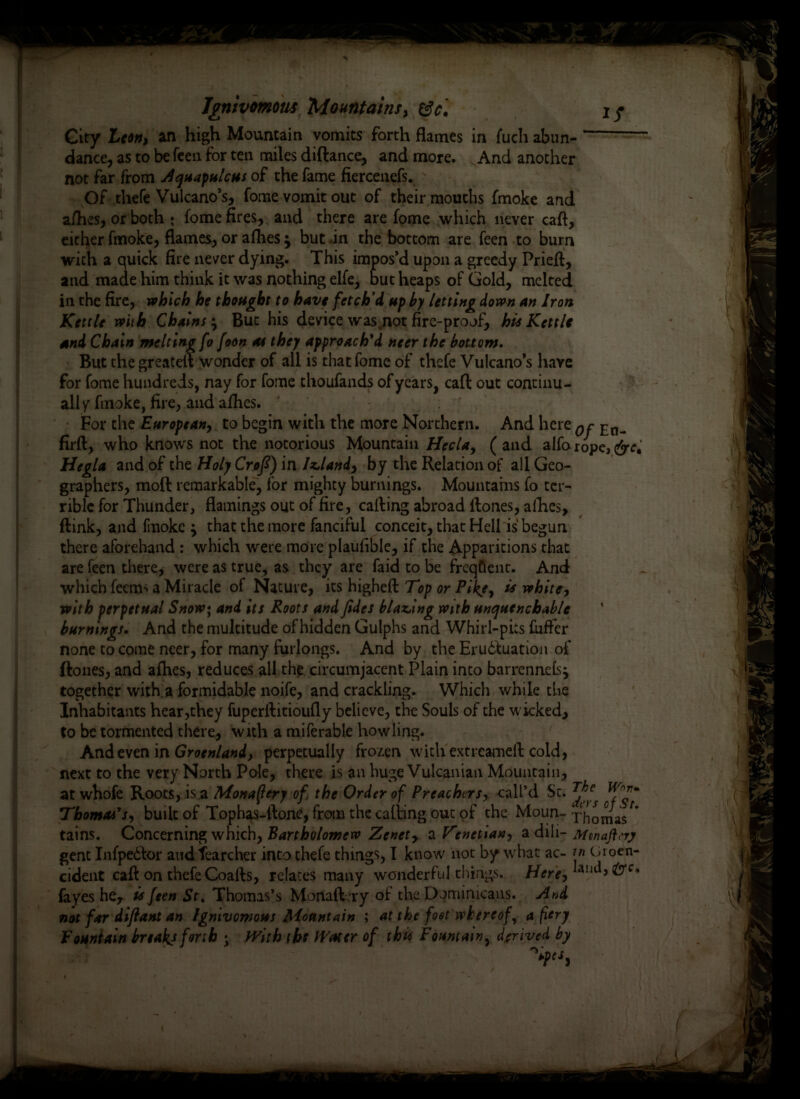 Ignivomous Mountains, &c. 15
City Leon, an high Mountain vomits forth flames in ſuch abun-
dance, as to be ſeen for ten miles diſtance, and more. And another
not far from Aquapulcus of the ſame fierceneſs.
Of theſe Vulcano's, ſome vomit out of their mouths ſmoke and
aſhes, or both; ſome fires, and there are ſome which never caſt,
either ſmoke, flames, or aſhes; but in the bottom are ſeen to burn
with a quick fire never dying. This impos'd upon a greedy Prieſt,
and made him think it was nothing elſe, but heaps of Gold, melted
in the fire, which he thought to have fetch'd up by letting down an Iron
Kettle with Chains; But his device was not fire-proof, his Kettle
and Chain melting ſo ſoon as they approach'd neer the bottom.
But the greateſt wonder of all is that ſome of theſe Vulcano's have
for ſome hundreds, nay for ſome thouſands of years, caſt out continu-
ally ſmoke, fire, and aſhes.
For the European, to begin with the more Northern. And here
Of Eu-
firſt, who knows not the notorious Mountain Hecla, (and alſo
rope, &c.
Hegla and of the Holy Croſs) in Izland, by the Relation of all Geo-
graphers, moſt remarkable, for mighty burnings. Mountains ſo ter-
rible for Thunder, flamings out of fire, caſting abroad ſtones, aſhes,
ſtink, and ſmoke; that the more fanciful conceit, that Hell is begun
there aforehand: which were more plauſible, if the Apparitions that
are ſeen there, were as true, as they are ſaid to be frequent. And
which ſeems a Miracle of Nature, its higheſt Top or Pike, is white,
with perpetual Snow; and its Roots and ſides blazing with unquenchable
burnings. And the multitude of hidden Gulphs and Whirl-pits ſuffer
none to come neer, for many furlongs. And by the Eructuation of
ſtones, and aſhes, reduces all the circumjacent Plain into barrenneſs;
together with a formidable noiſe, and crackling. Which while the
Inhabitants hear, they ſuperſtitiouſly believe, the Souls of the wicked,
to be tormented there, with a miſerable howling.
And even in Groenland, perpetually frozen with extreameſt cold,
next to the very North Pole, there is an huge Vulcanian Mountain,
at whoſe Roots, is a Monaſtery of the Order of Preachers, call'd St.
The Won-
ders of St.
Thomas's, built of Tophas-ſtone, from the caſting out of the Moun-
Thomas
tains. Concerning which, Bartholomew Zenet, a Venetian, a dili-
Monaſtery
gent Inſpector and ſearcher into theſe things, I know not by what ac-
in Groen-
cident caſt on theſe Coaſts, relates many wonderful things. Here,
land, &c.
ſayes he, is ſeen St. Thomas's Monaſtery of the Dominicans. And
not far diſtant an Ignivomous Mountain; at the foot whereof, a fiery
Fountain breaks forth; With the Water of this Fountain, derived by